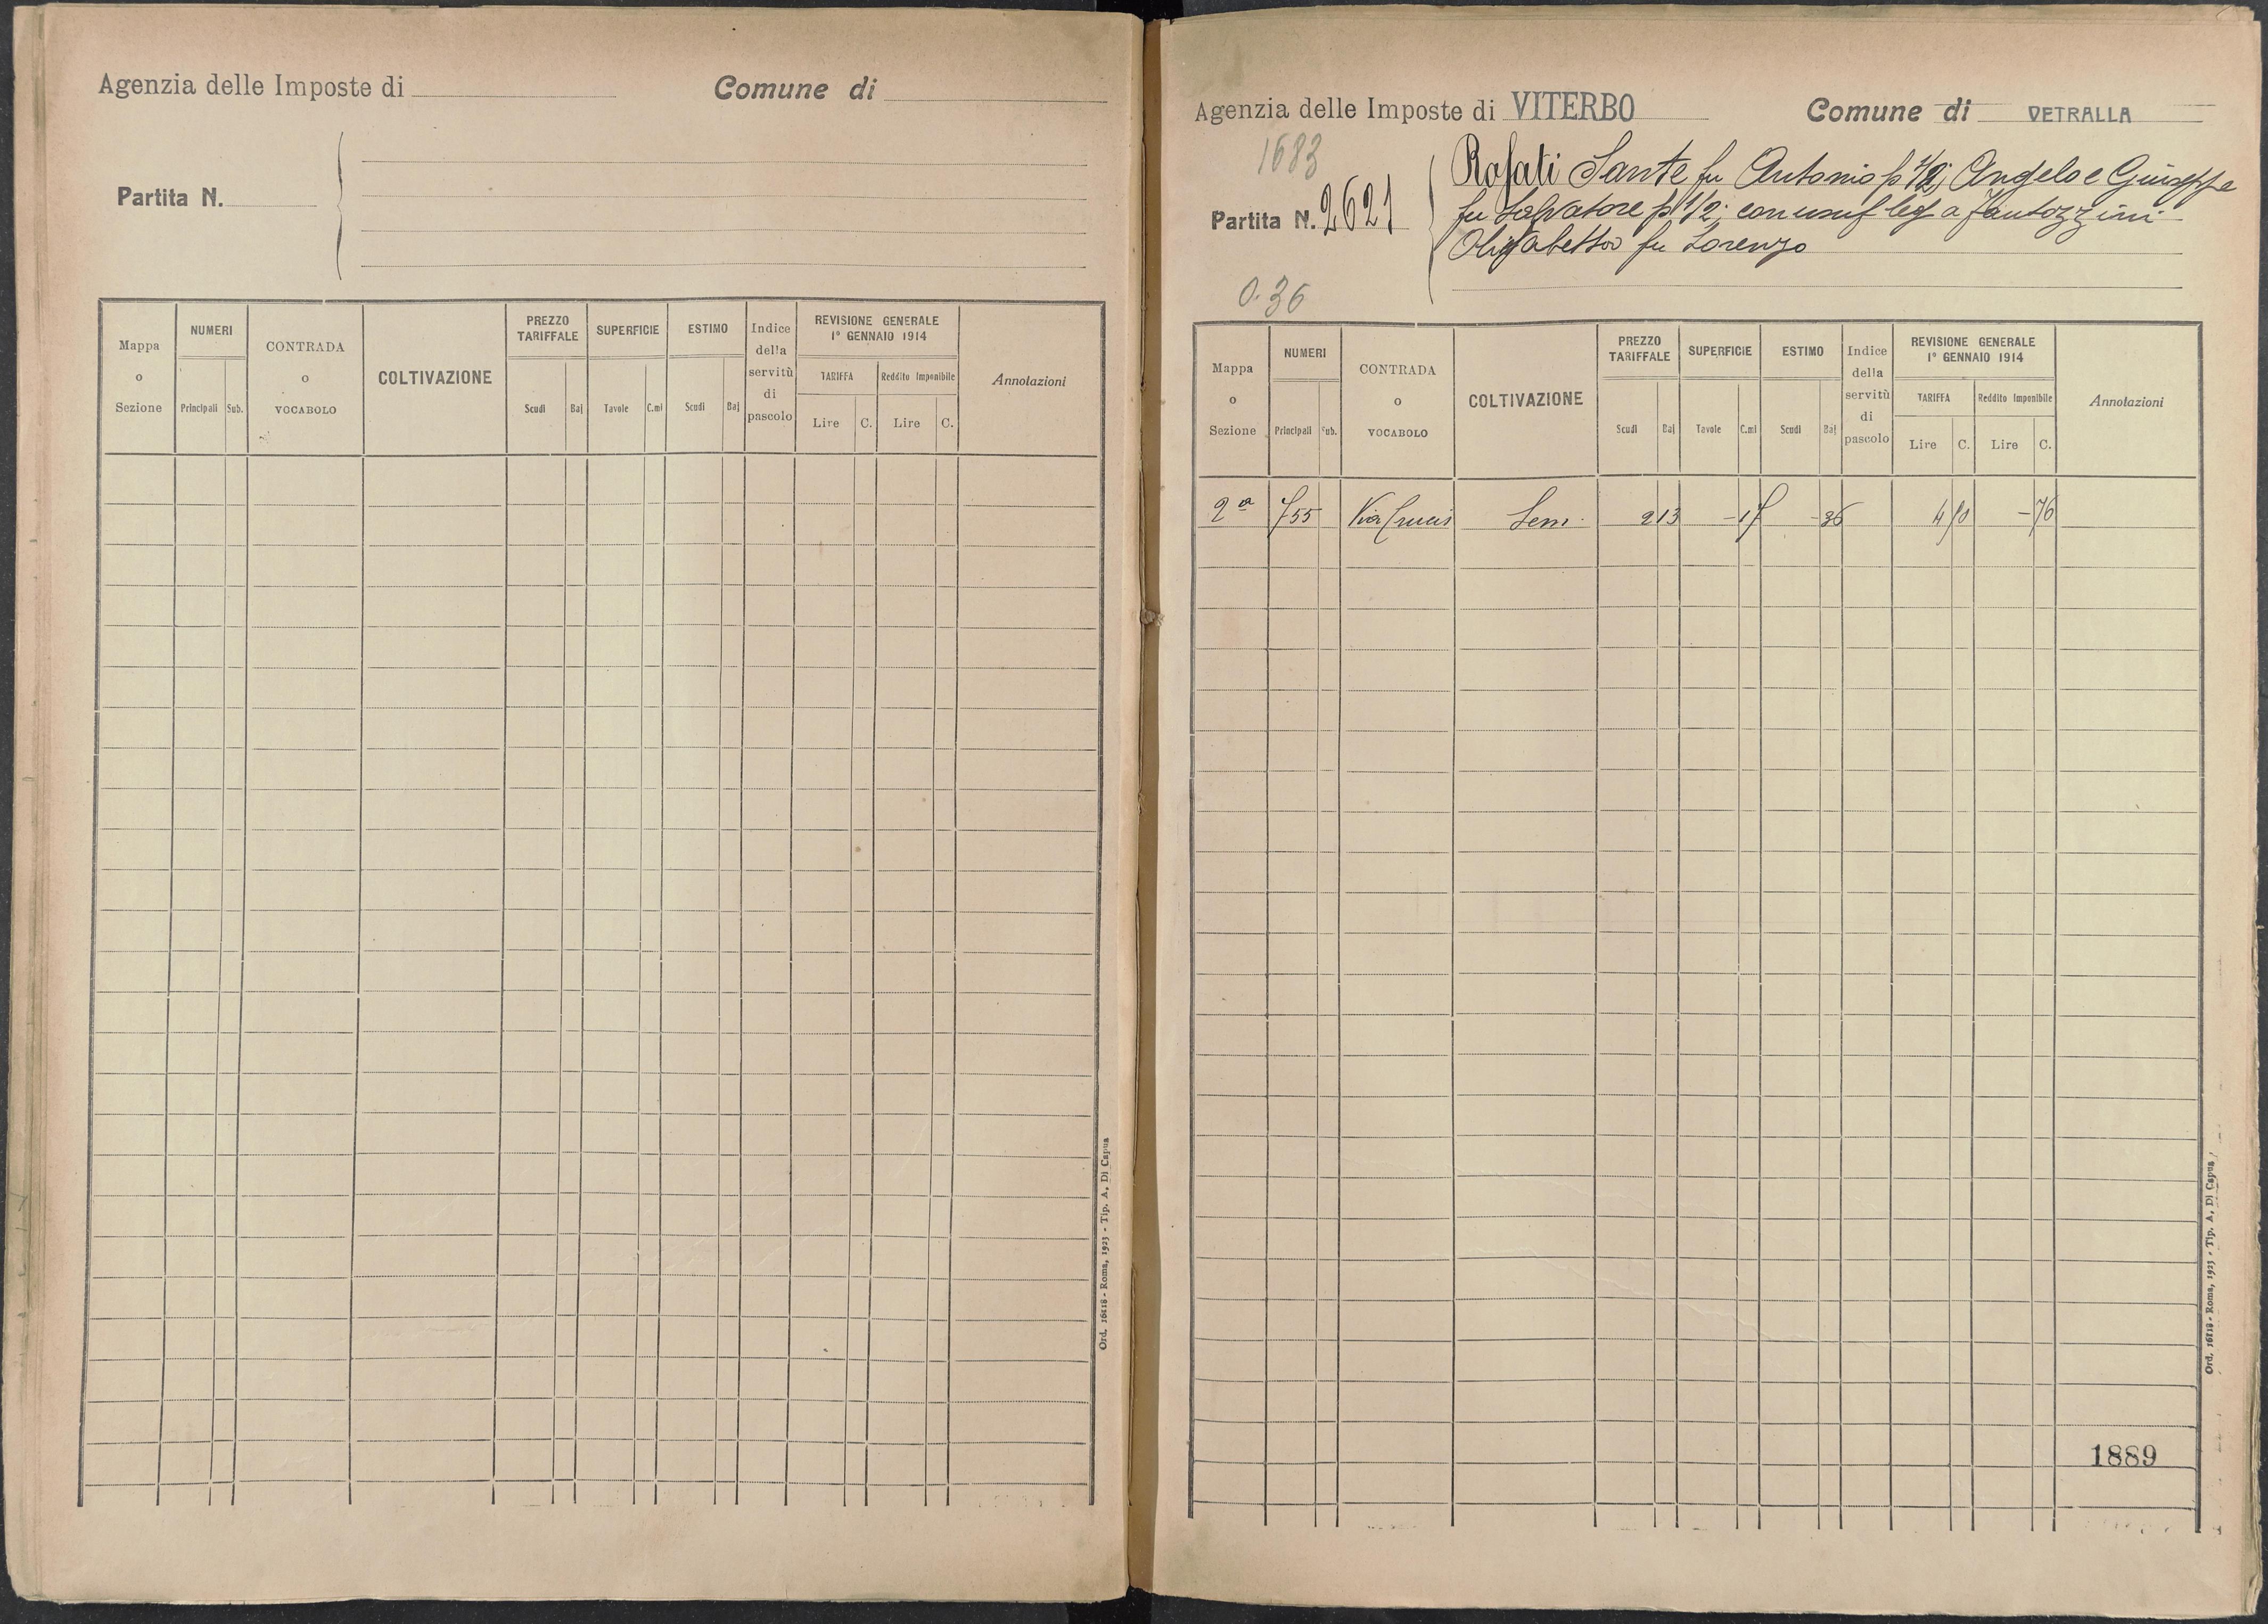 Agenzia delle Imposte di
Comune di
Partita N.
Mappa o Sezione
NUMERI
Principali
Sub.
CONTRADA o VOCABOLO
COLTIVAZIONE
PREZZO TARIFFALE
Scudi
Baj
SUPERFICIE
Tavole
C.mi
ESTIMO
Scudi
Baj
Indice della servitù di pascolo
REVISIONE GENERALE
1° GENNAIO 1914
TARIFFA
Lire
C.
Reddito Imponibile
Lire
C.
Annotazioni
Ord. 16118 - Roma, 1923 - Tip. A. Di Capua
Agenzia delle Imposte di VITERBO
Comune di VETRALLA
1683
Partita N. 2621
Rosati Sante fu Antonio p 1/2; Angelo e Giuseppe
fu Salvatore p 1/2; con usuf leg a Fantozzini
fu Lorenzo
0.36
Mappa o Sezione
NUMERI
Principali
Sub.
CONTRADA o VOCABOLO
COLTIVAZIONE
PREZZO TARIFFALE
Scudi
Baj
SUPERFICIE
Tavole
C.mi
ESTIMO
Scudi
Baj
Indice della servitù di pascolo
REVISIONE GENERALE
1° GENNAIO 1914
TARIFFA
Lire
C.
Reddito Imponibile
Lire
C.
Annotazioni
2a 755 Via Crucis Sem. 2 13 - 17 - 36 - 76
1889
Ord. 16118 - Roma, 1923 - Tip. A. Di Capua